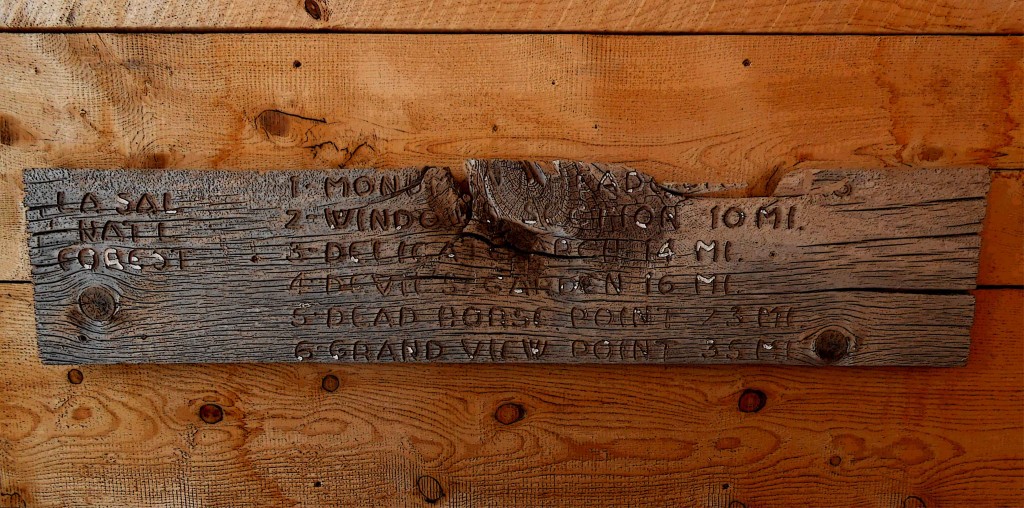 LA SAL
NAT'L
FOREST
2· WINDOWS SECTION 10 MI.
3· DELICATE ARCH 14 MI.
4· DEVILS GARDEN 16 MI.
5· DEAD HORSE POINT 23 MI.
6· GRAND VIEW POINT 35 MI.